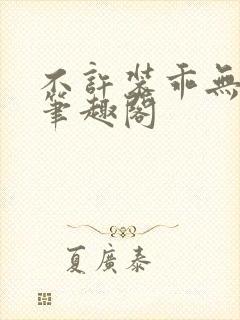 不許装乖無
筆趣閣
夏廣泰